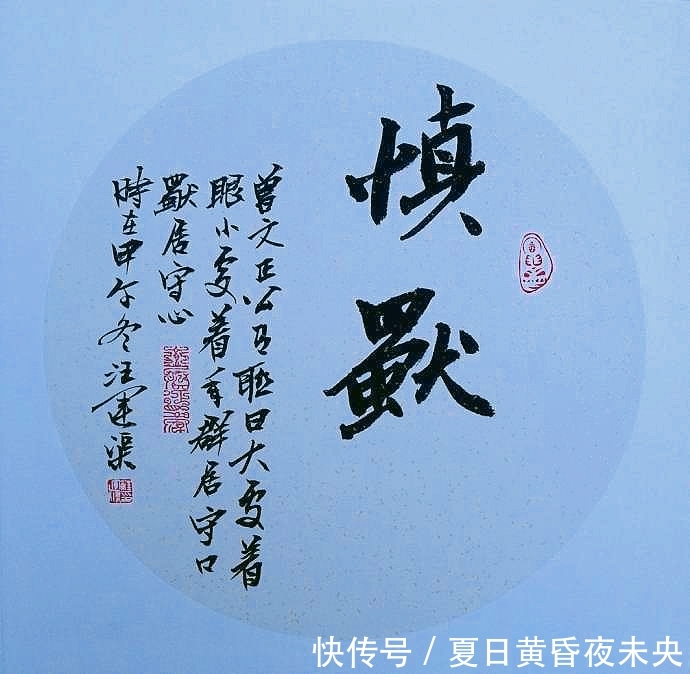 慎
獨
曾文正公有聯曰大處着
眼小處着手群居守口
獨居守心
時在甲午冬汪運渠
快传号 / 夏日黄昏夜未央